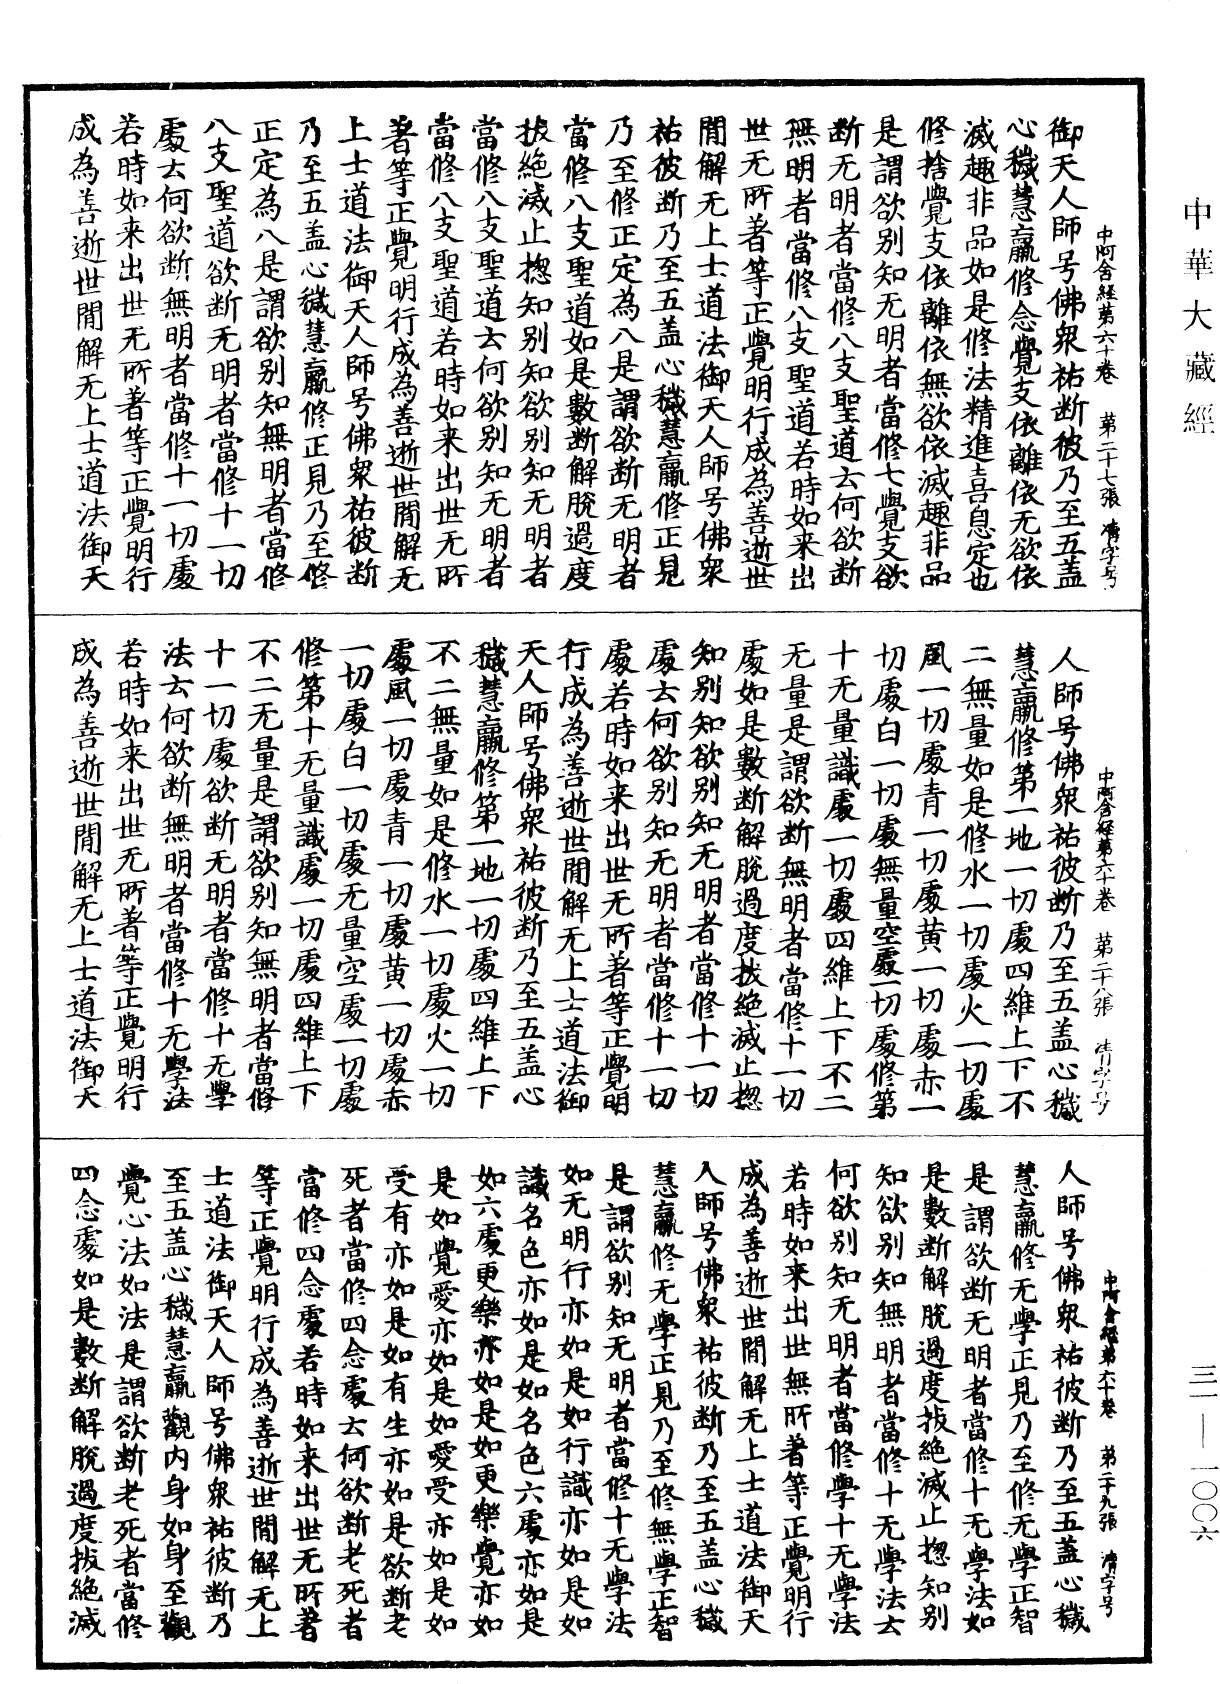 中華大藏經
中阿含経第六十卷 第二十七張 清字号
御天人師号佛衆祐断彼乃至五盖
心穢慧羸修念覺支依離依无欲依
滅趣非品如是修法精進喜息定也
修捨覺支依離依無欲依滅趣非品
是謂欲別知无明者當修七覺支欲
断无明者當修八支聖道云何欲断
無明者當修八支聖道若時如来出
世无所著等正覺明行成為善逝世
間解无上士道法御天人師号佛衆
祐彼断乃至五盖心穢慧羸修正見
乃至修正定為八是謂欲断无明者
當修八支聖道如是數断解脫過度
拔絶滅止揔知別知欲別知无明者
當修八支聖道云何欲別知无明者
當修八支聖道若時如来出世无所
著等正覺明行成為善逝世間解无
上士道法御天人師号佛衆祐彼断
乃至五盖心穢慧羸修正見乃至修
正定為八是謂欲別知無明者當修
八支聖道欲断无明者當修十一切
處云何欲断無明者當修十一切處
若時如来出世无所著等正覺明行
成為善逝世間解无上士道法御天
中阿含経第六十卷 第二十八張 清字号
人師号佛衆祐彼断乃至五盖心穢
慧羸修第一地一切處四維上下不
二無量如是修水一切處火一切處
風一切處青一切處黄一切處赤一
切處白一切處無量空處一切處修第
十无量識處一切處四維上下不二
无量是謂欲断無明者當修十一切
處如是數断解脫過度拔絶滅止揔
知別知欲別知无明者當修十一切
處云何欲別知无明者當修十一切
處若時如来出世无所著等正覺明
行成為善逝世間解无上士道法御
天人師号佛衆祐彼断乃至五盖心
穢慧羸修第一地一切處四維上下
不二無量如是修水一切處火一切
處風一切處青一切處黄一切處赤
一切處白一切處无量空處一切處
修第十无量識處一切處四維上下
不二无量是謂欲別知無明者當修
十一切處欲断无明者當修十无學
法云何欲断無明者當修十无學法
若時如来出世无所著等正覺明行
成為善逝世間解无上士道法御天
中阿含経第六十卷 第二十九張 清字号
人師号佛衆祐彼断乃至五盖心穢
慧羸修无學正見乃至修无學正智
是謂欲断无明者當修十无學法如
是數断解脫過度拔絶滅止揔知別
知欲別知無明者當修十无學法云
何欲別知无明者當修學十无學法
若時如来出世無所著等正覺明行
成為善逝世間解无上士道法御天
人師号佛衆祐彼断乃至五盖心穢
慧羸修无學正見乃至修無學正智
是謂欲別知无明者當修十无學法
如无明行亦如是如行識亦如是如
識名色亦如是如名色六處亦如是
如六處更樂亦如是如更樂覺亦如
是如覺愛亦如是如愛受亦如是如
受有亦如是如有生亦如是欲断老
死者當修四念處云何欲断老死者
當修四念處若時如来出世无所著
等正覺明行成為善逝世間解无上
士道法御天人師号佛衆祐彼断乃
至五盖心穢慧羸觀内身如身至觀
覺心法如法是謂欲断老死者當修
四念處如是數断解脫過度拔絶滅
三一—一〇〇六